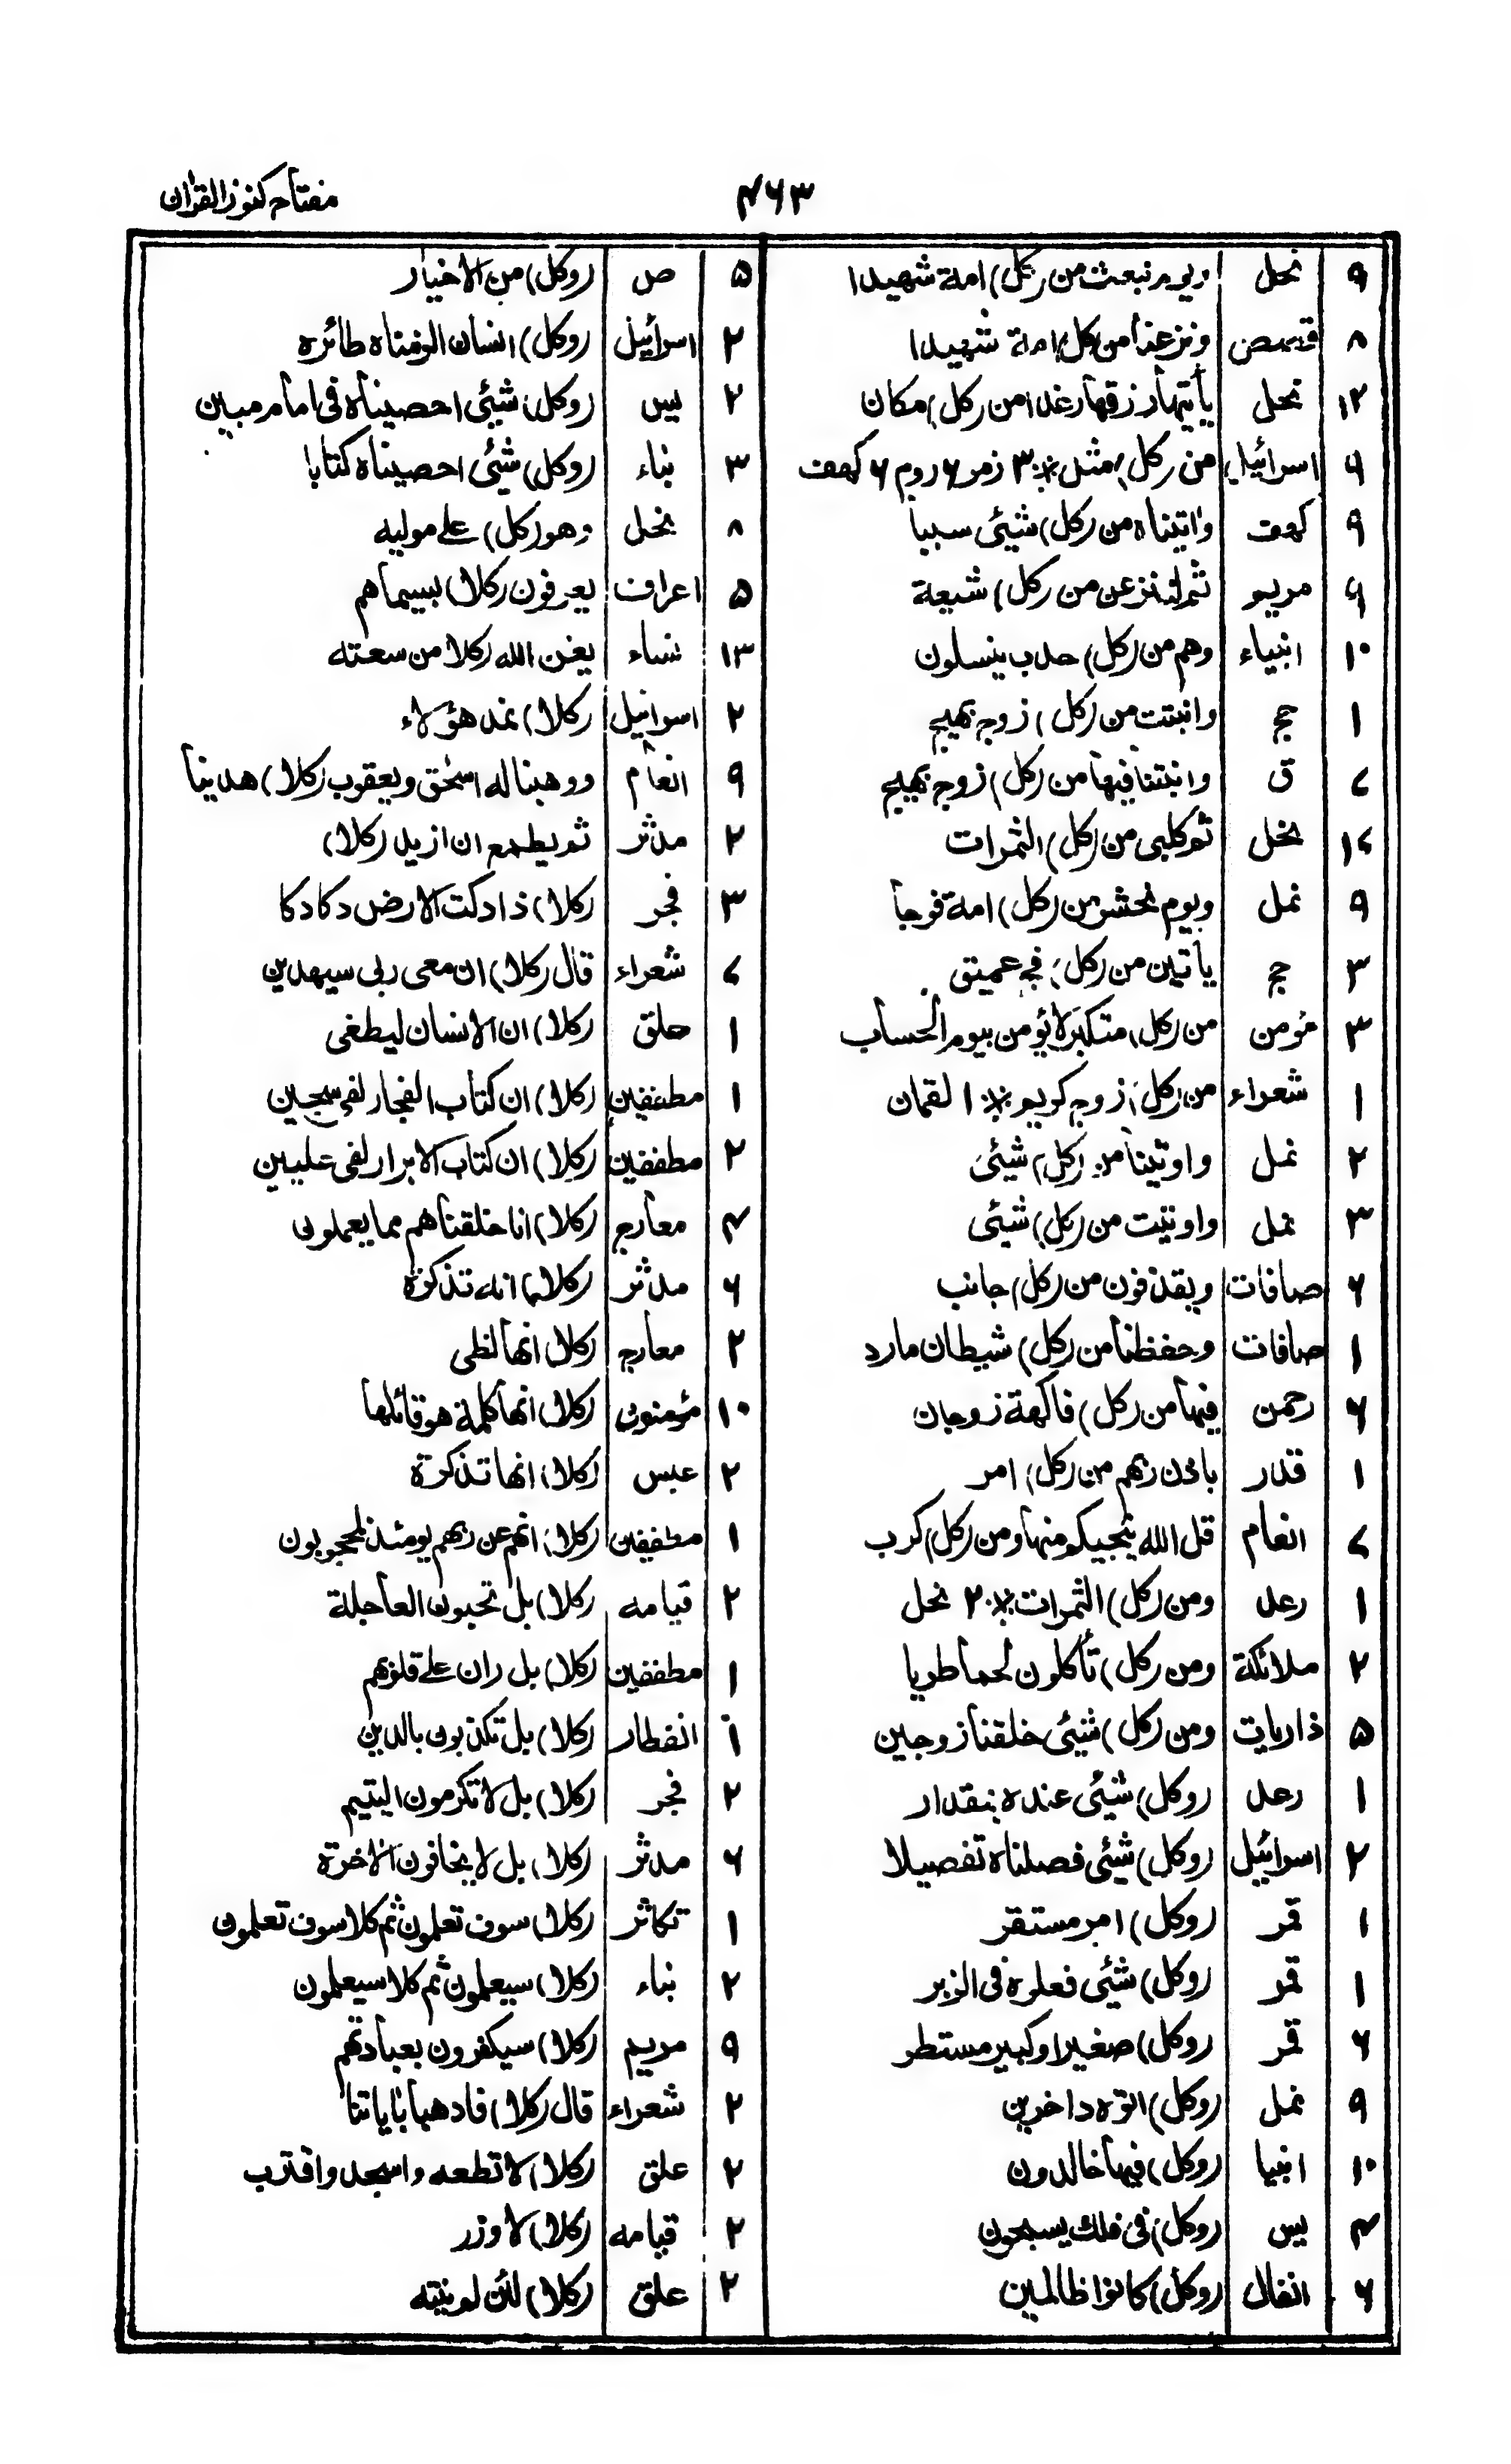 ۴۶۳
مفتاح کنوز القرآن
۹ نحل ویوم نبعث من (کل) امة شهیدا
۸ قصص ونزعنا من (کل) امة شهیدا
۱۲ نحل یأتیها رزقها رغدا من (کل) مکان
۹ اسرائیل من (کل) مثل ٪ ۳ زمر ۶ روم ۶ کهف
۹ کهف واتیناه من (کل) شیئی سببا
۹ مریم ثم لننزعن من (کل) شیعة
۱۰ انبیاء وهم من (کل) حدب ینسلون
۱ حج وانبتت من (کل) زوج بهیج
۷ ق وانبتنا فیها من (کل) زوج بهیج
۱۷ نحل ثم کلی من (کل) الثمرات
۹ نمل ویوم نحشر من (کل) امة فوجا
۳ حج یأتین من (کل) فج عمیق
۳ مؤمن من (کل) متکبر لا یؤمن بیوم الحساب
۱ شعراء من (کل) زوج کریم ٪ ۱ لقمان
۲ نمل واوتینا من (کل) شیئی
۳ نمل واوتیت من (کل) شیئی
۶ صافات ویقذفون من (کل) جانب
۱ صافات وحفظنا من (کل) شیطان مارد
۶ رحمن فیها من (کل) فاکهة زوجان
۱ قدر باذن ربهم من (کل) امر
۷ انعام قل الله ینجیکم منها ومن (کل) کرب
۱ رعد ومن (کل) الثمرات ٪ ۲ نحل
۲ ملائکة ومن (کل) تأکلون لحما طریا
۵ ذاریات ومن (کل) شیئی خلقنا زوجین
۱ رعد (وکل) شیئی عنده بمقدار
۲ اسرائیل (وکل) شیئی فصلناه تفصیلا
۱ قمر (وکل) امر مستقر
۱ قمر (وکل) شیئی فعلوه فی الزبر
۶ قمر (وکل) صغیر او کبیر مستطر
۹ نمل (وکل) اتوه داخرین
۱۰ انبیا (وکل) فیها خالدون
۴ یس (وکل) فی فلك یسبحون
۶ انفال (وکل) کانوا ظالمین
۵ ص (وکل) من الاخیار
۲ اسرائیل (وکل) انسان الزمناه طائره
۲ یس (وکل) شیئی احصیناه فی امام مبین
۳ نباء (وکل) شیئی احصیناه کتابا
۸ نحل وهو (کل) علے مولیه
۵ اعراف یعرفون (کلا) بسیماهم
۱۳ نساء یغن الله (کلا) من سعته
۲ اسرائیل (کلا) نمد هؤلاء
۹ انعام ووهبنا له اسحٰق ویعقوب (کلا) هدینا
۲ مدثر ثم یطمع ان ازید (کلا)
۳ فجر (کلا) ذا دکت الارض دکا دکا
۷ شعراء قال (کلا) ان معی ربی سیهدین
۱ علق (کلا) ان الانسان لیطغی
۱ مطففین (کلا) ان کتاب الفجار لفی سجین
۲ مطففین (کلا) ان کتاب الابرار لفی علیین
۴ معارج (کلا) انا خلقناهم مما یعملون
۶ مدثر (کلا) انه تذکرة
۲ معارج (کلا) انها لظی
۱۰ مؤمنون (کلا) انها کلمة هو قائلها
۲ عبس (کلا) انها تذکرة
۱ مطففین (کلا) انهم عن ربهم یومئذ لمحجوبون
۲ قیامه (کلا) بل تحبون العاجلة
۱ مطففین (کلا) بل ران علے قلوبهم
۱ انفطار (کلا) بل تکذبون بالدین
۲ فجر (کلا) بل لا تکرمون الیتیم
۶ مدثر (کلا) بل لا یخافون الاخرة
۱ تکاثر (کلا) سوف تعلمون ثم کلا سوف تعلمون
۲ نباء (کلا) سیعلمون ثم کلا سیعلمون
۹ مریم (کلا) سیکفرون بعبادتهم
۲ شعراء قال (کلا) فاذهبا بایاتنا
۲ علق (کلا) لا تطعه واسجد واقترب
۲ قیامه (کلا) لا وزر
۲ علق (کلا) لئن لم ینته